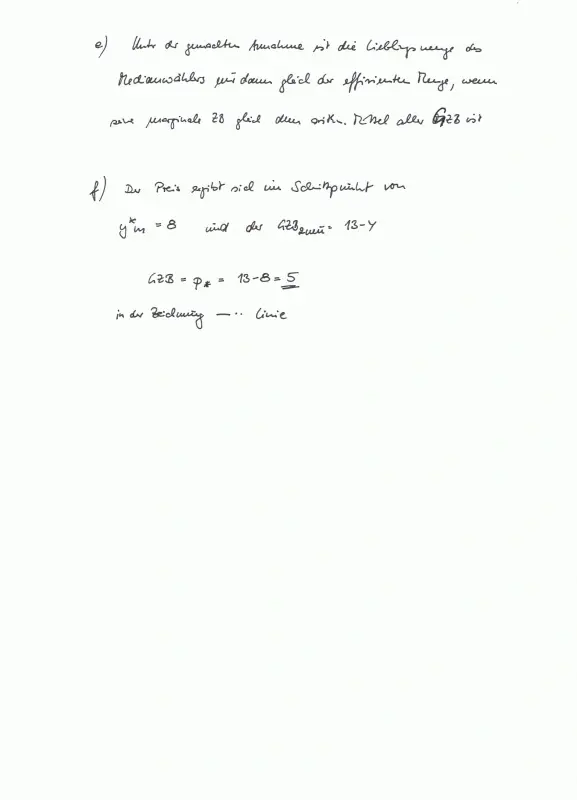 e) Unter der gemachten Annahme ist die Lieblingsmenge des
Medianwählers nur dann gleich der effizienten Menge, wenn
seine marginale ZB gleich dem arithm. Mittel aller GZB ist
f) Der Preis ergibt sich im Schnittpunkt von
y*m = 8 und der GZB = 13-y
GZB = p* = 13-8 = 5
in der Zeichnung —·· Linie